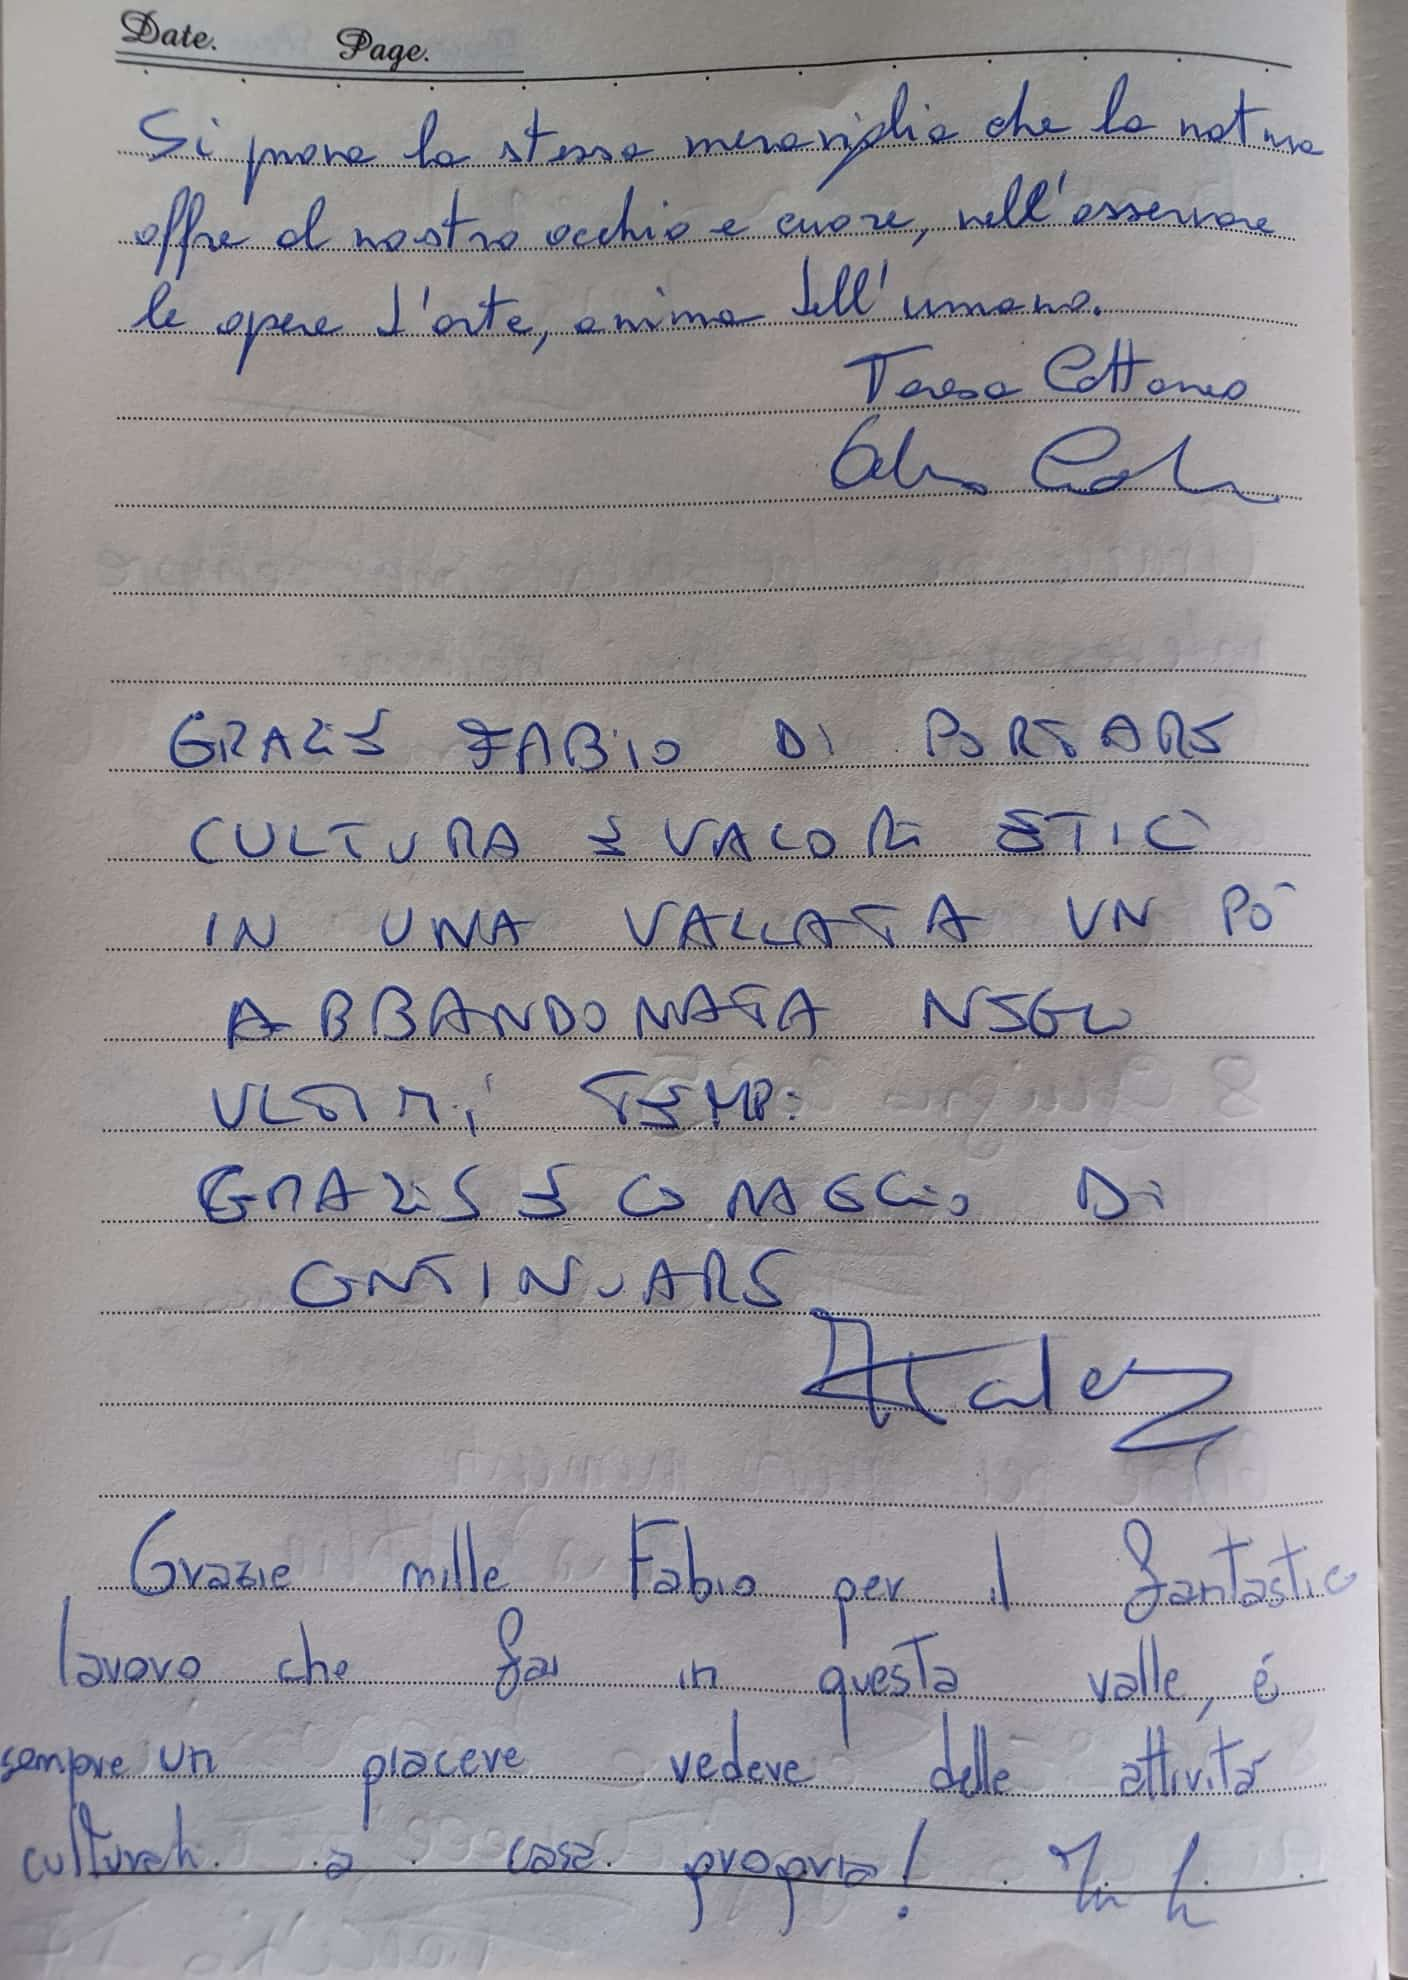 Date. Page.
Si prova la stessa meraviglia che la natura
offre al nostro occhio e cuore, nell'osservare
le opere d'arte, anima dell'umano.
Teresa Cattaneo
GRAZIE FABIO DI PORTARE
CULTURA E VALORI ETICI
IN UNA VALLATA UN PÒ
ABBANDONATA NEGLI
ULTIMI TEMPI
GRAZIE E CORAGGIO DI
CONTINUARE
Grazie mille Fabio per il fantastico
lavoro che fai in questa valle, é
sempre un piacere vedere delle attività
culturali a casa propria!